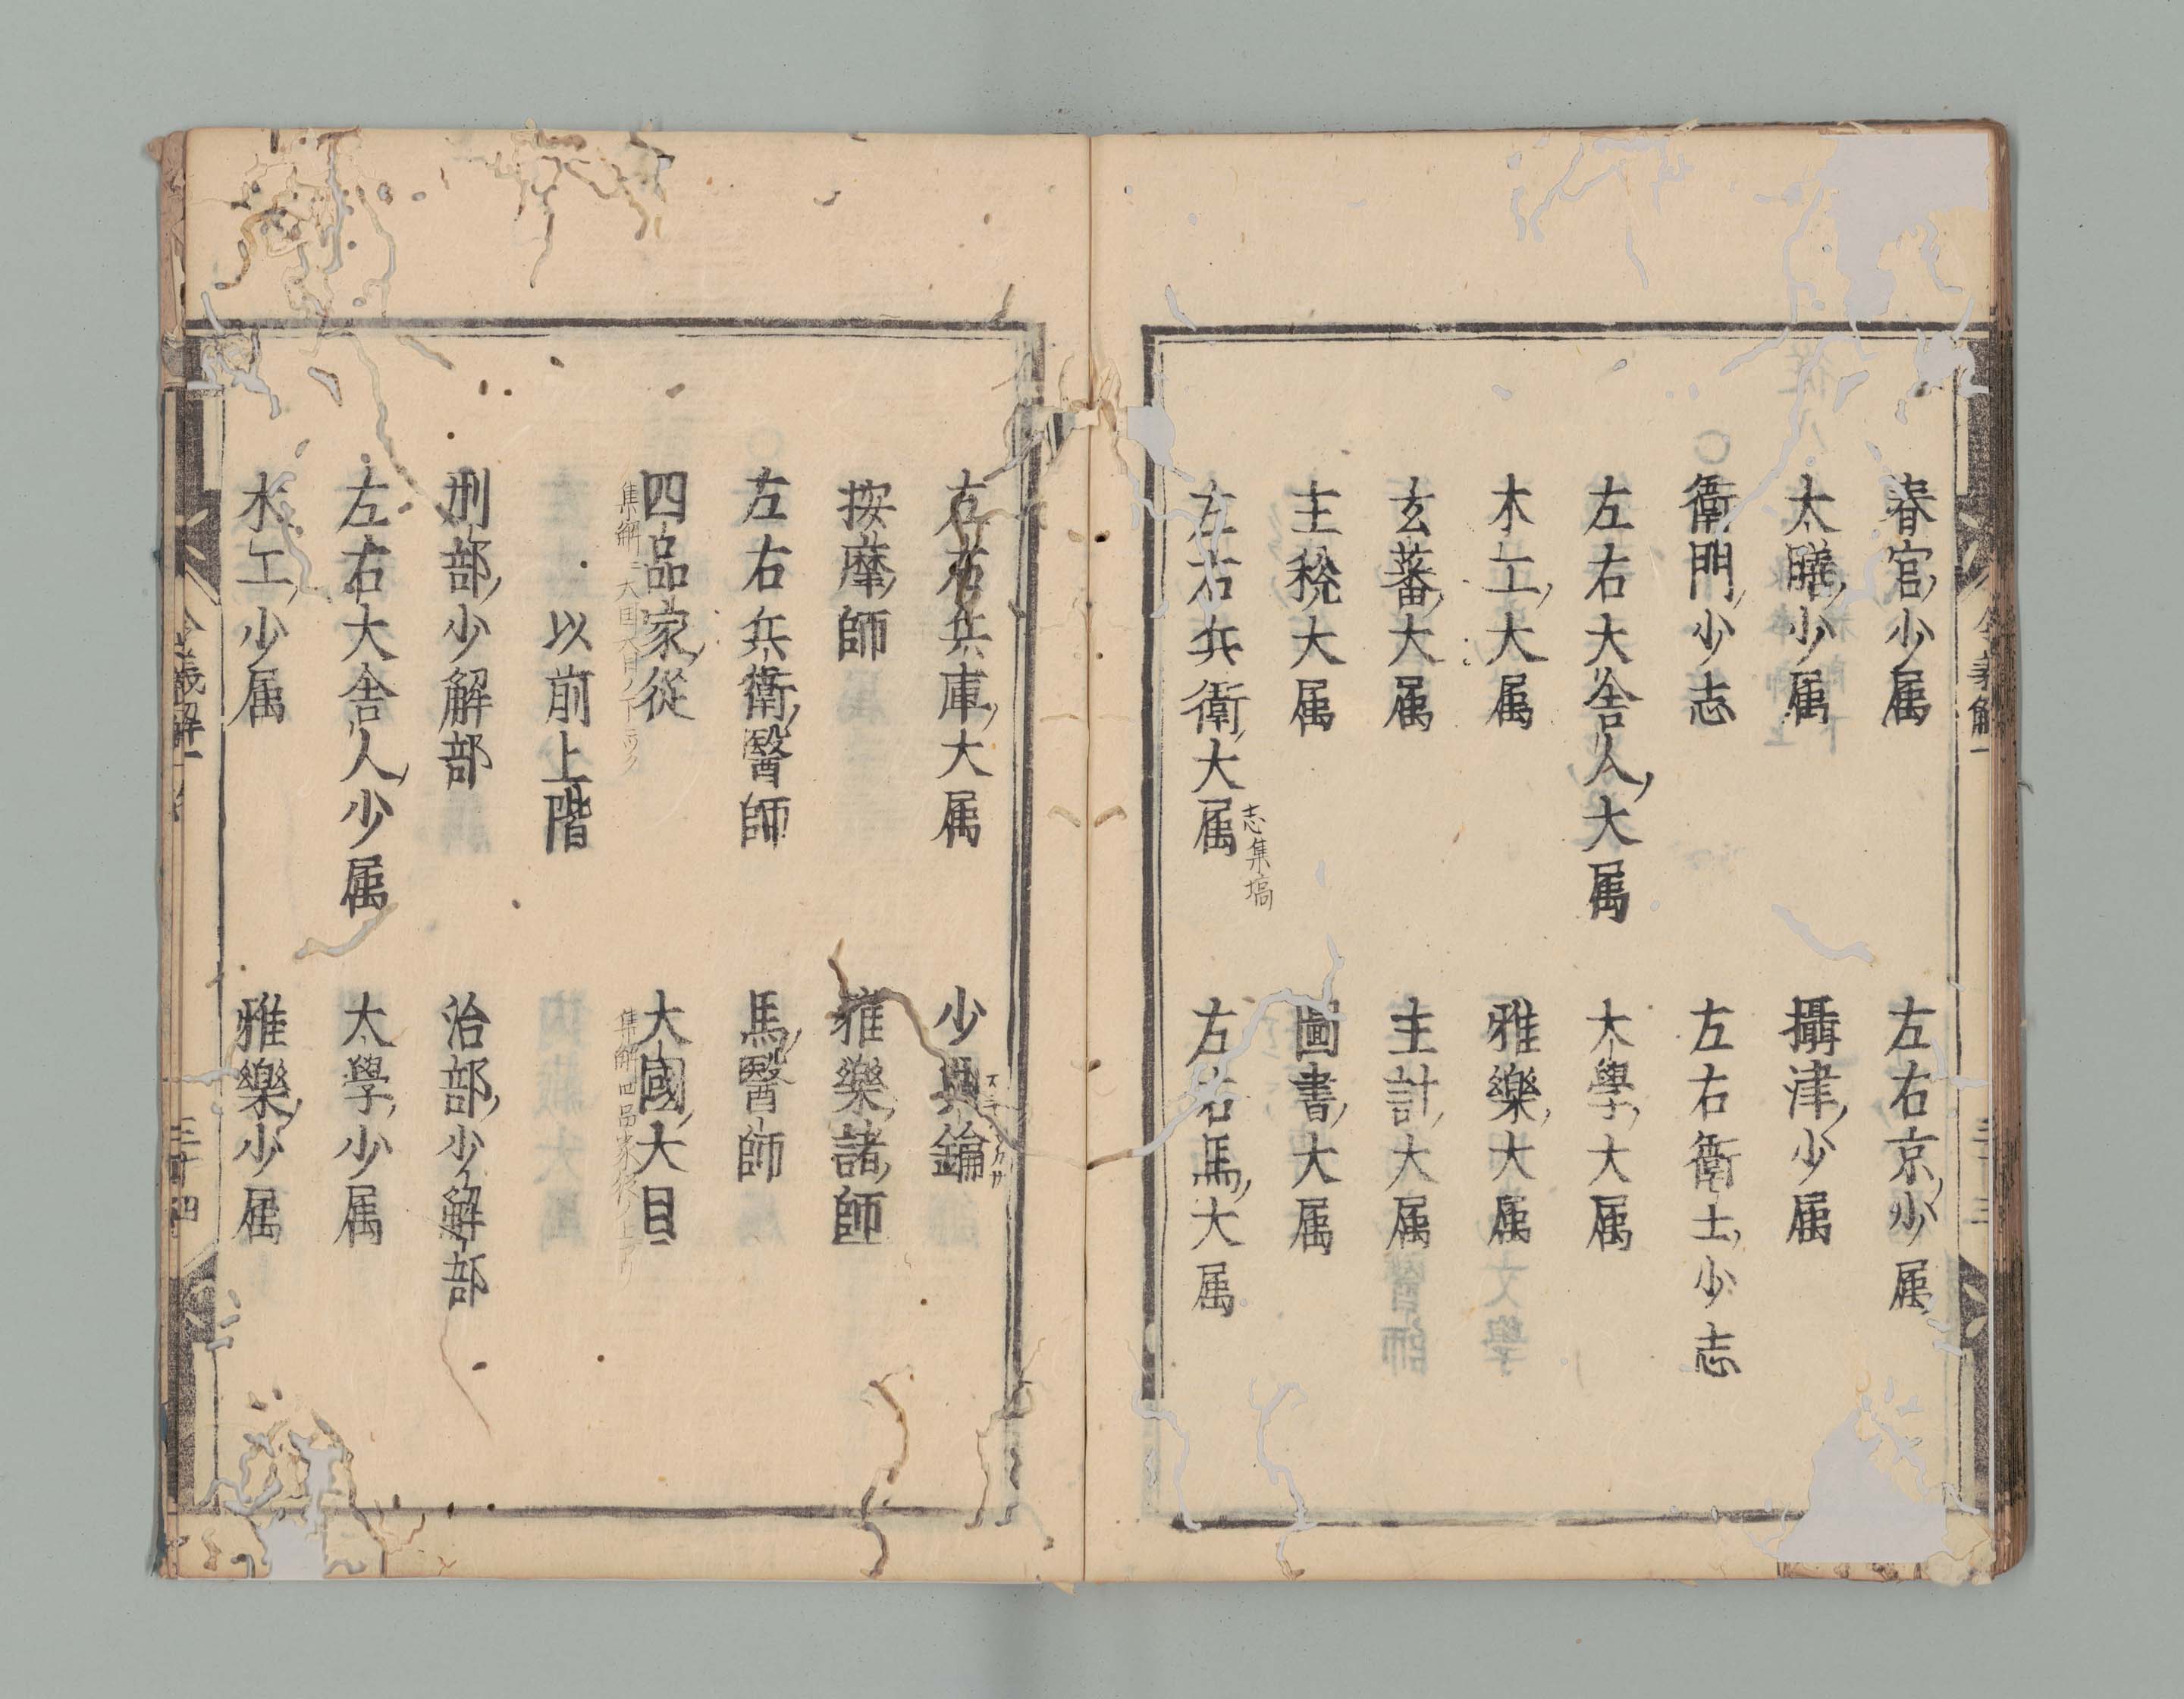 春官少属　左右京少属
大膳少属　攝津少属
衛門少志　左右衛士少志
左右大舎人大属　大學大属
木工大属　雅樂大属
玄蕃大属　主計大属
主稅大属　圖書大属
左右兵衛大属　左右馬大属
志集塙
令義解一
左右兵庫大属　少典鑰
按摩師　雅樂諸師
左右兵衛醫師　馬醫師
四品家從　大國大目
集解ニ大国大目ノ下ニアリ
集解四品家從ノ上ニアリ
以前上階
刑部少解部　治部少解部
左右大舎人少属　大學少属
木工少属　雅樂少属
令義解一
三十四